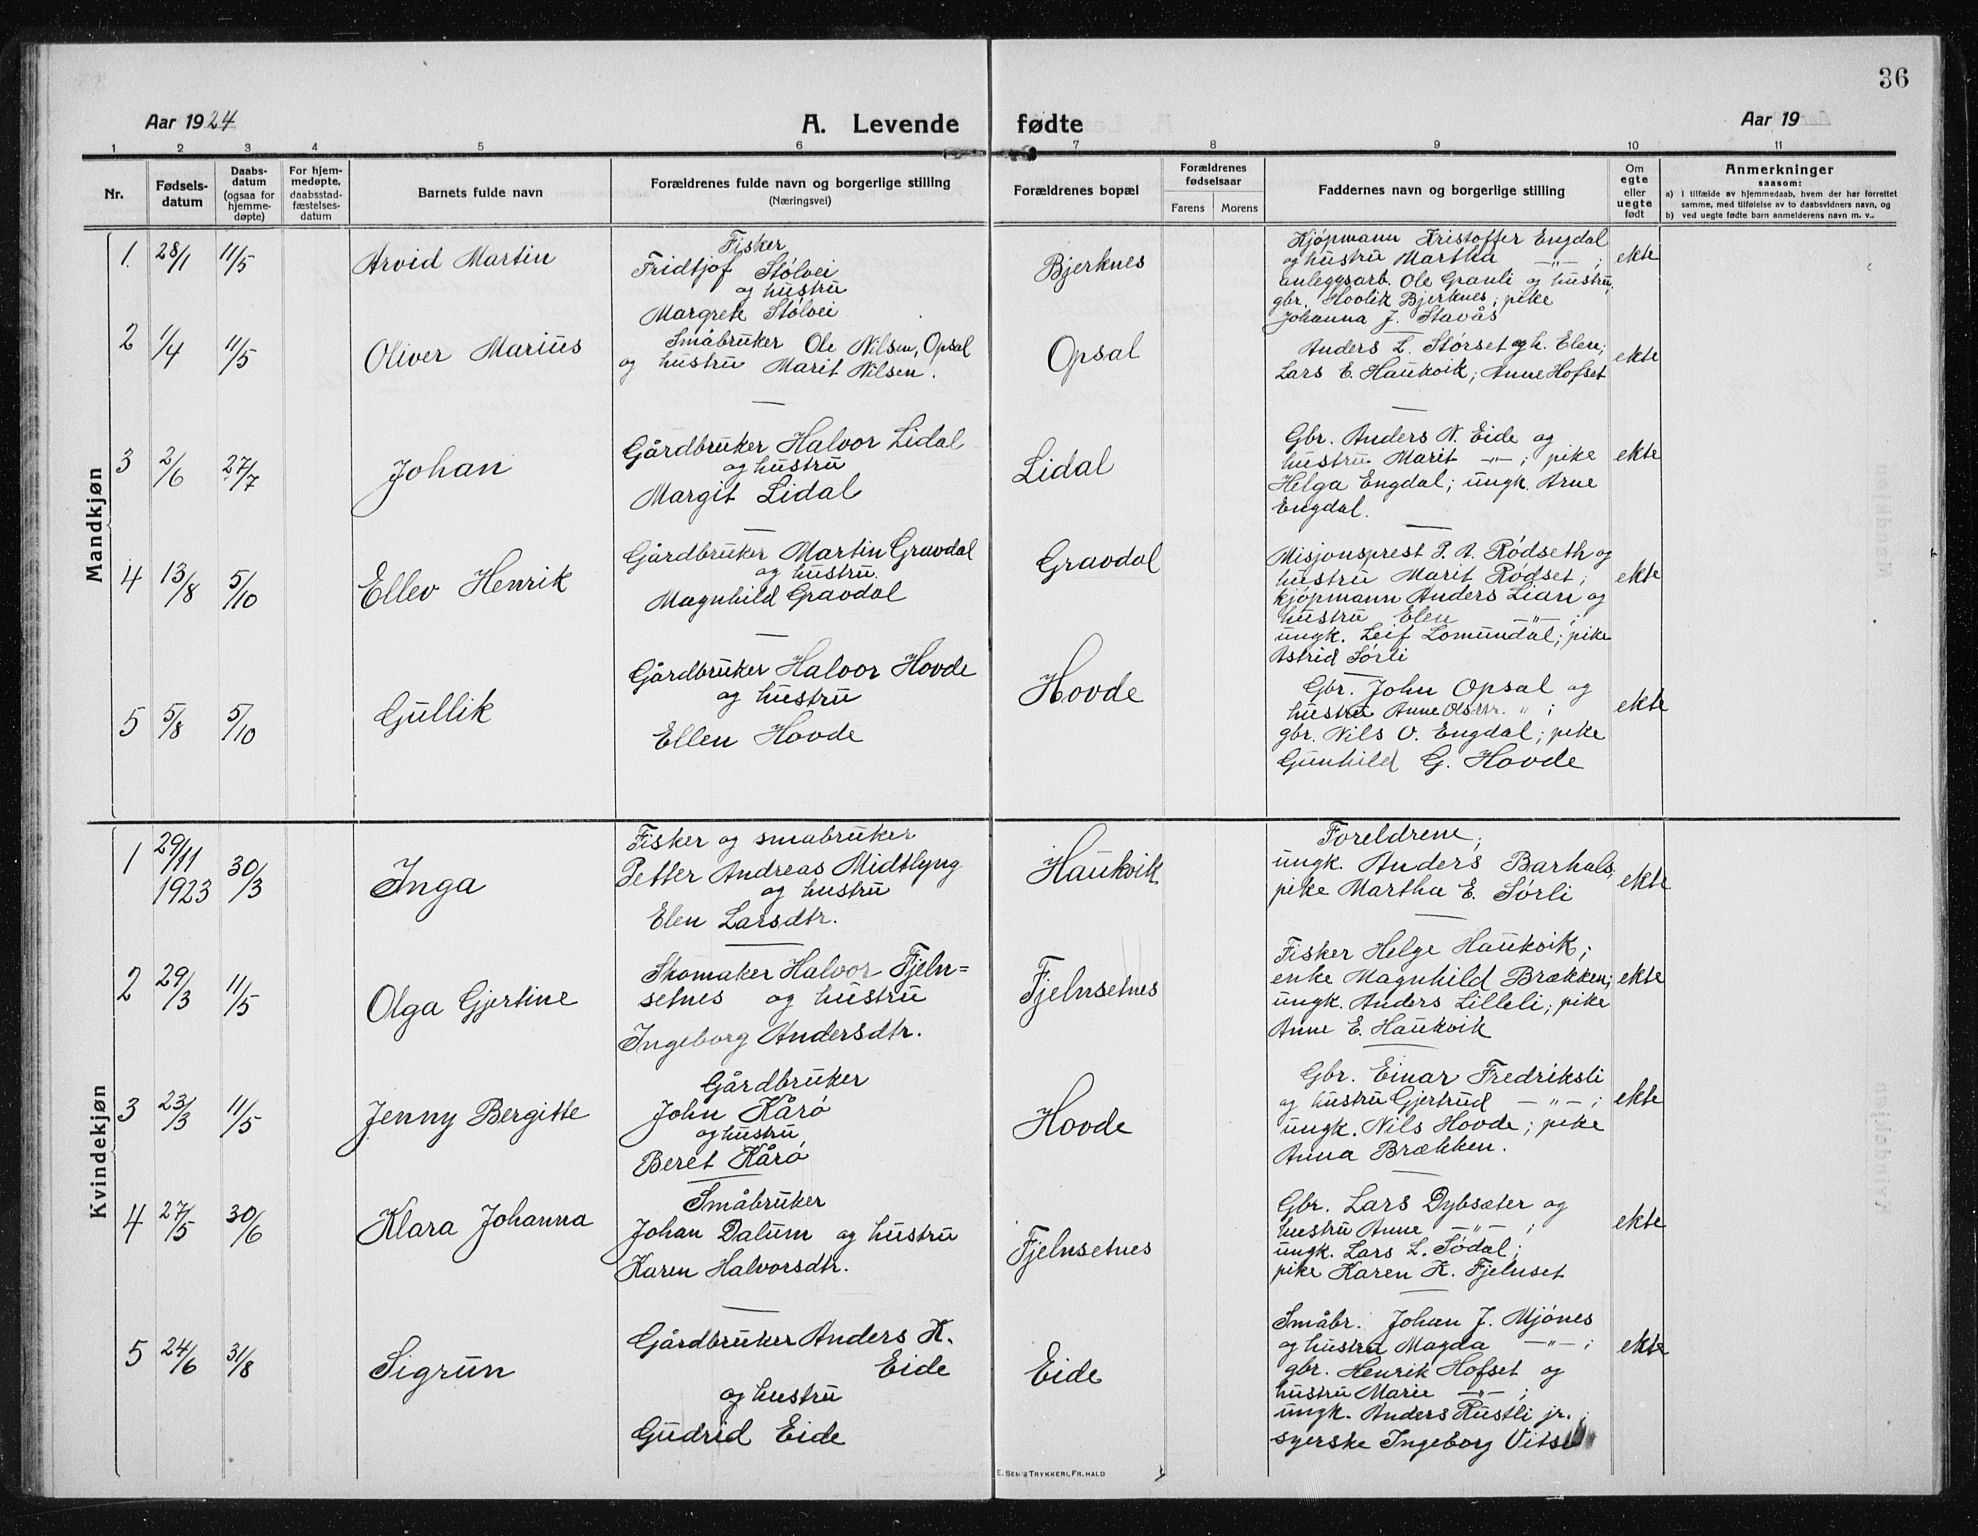 36
Aar 1924
A. Levende fødte
Aar 19
1 2 3 4 5 6 7 8 9 10 11
Nr.
Fødsels-
datum
Daabs-
datum
(ogsaa for
hjemme-
døpte)
For hjem-
medøpte,
daabsstad-
fæstelses-
datum
Barnets fulde navn
Forældrenes fulde navn og borgerlige stilling
(Næringsvei)
Forældrenes bopæl
Forældrenes
fødselsaar
Farens Morens
Faddernes navn og borgerlige stilling
Om
egte
eller
uegte
født
Anmerkninger
saasom:
a) i tilfælde av hjemmedaab, hvem der har forrettet
samme, med tilføielse av to daabsvidners navn, og
b) ved uegte fødte barn anmelderens navn m. v..
Mandkjøn
1. 28/1 11/5
Arvid Martin
Fisker
Fridtjof Stölvei
og hustru
Margrete Stölvei
Bjerknes
Kjöpmann Kristoffer Engdal
og hustru Martha —"— ;
anleggsarb. Ole Granli og hustru;
gbr. Hoolik Bjerknes; pike
Johanna J. Stavås
ekte
2 1/4 11/5
Oliver Marius
Småbruker Ole Nilsen, Opsal
og hustru Marit Nilsen.
Opsal
Anders L. Störset og h. Elen;
Lars E. Haukvik; Anne Hofset
ekte
3 2/6 27/7
Johan
Gårdbruker Halvor Lidal
og hustru
Margit Lidal
Lidal
Gbr. Anders N. Eide og
hustru Marit —"— ; pike
Helga Engdal; ungk. Arne
Engdal.
ekte
4 13/8 5/10
Ellev Henrik
Gårdbruker Martin Gravdal
og hustru.
Magnhild Gravdal
Gravdal
Misjonsprest P. A. Rödseth og
hustru Marit Rödset;
kjöpmann Anders Lian og
hustru Elen —"— ;
ungk. Leif Lomundal; pike
Astrid Sörli
ekte
5 5/8 5/10
Gullik
Gårdbruker Halvor Hovde
og hustru
Ellen Hovde
Hovde
Gbr. John Opsal og
hustru Anne Olsdtr. " ;
gbr. Nils O. Engdal; pike
Gunhild G. Hovde
ekte
Kvindekjøn
1 29/11 1923 30/3
Inga
Fisker og småbruker
Petter Andreas Midtlyng
og hustru
Elen Larsdtr.
Haukvik
Foreldrene;
ungk. Anders Barhals,
pike Martha E. Sörli
ekte
2 29/3 11/5
Olga Gjertine
Skomaker Halvor Fjeln=
setnes og hustru
Ingeborg Andersdtr.
Fjelnsetnes
Fisker Helge Haukvik;
enke Magnhild Brækken;
ungk. Anders Lilleli; pike
Anne E. Haukvik
ekte
3 23/3 11/5
Jenny Bergitte
Gårdbruker
John Kårö
og hustru
Beret Kårö
Hovde
Gbr. Einar Fredriksli
og hustru Gjertrud —"— ;
ungk. Nils Hovde; pike
Anna Brækken.
ekte
4 27/5 30/6
Klara Johanna
Småbruker
Johan Dalum og hustru
Karen Halvorsdtr.
Fjelnsetnes
Gbr. Lars Dybsæter og
hustru Anne —"— ;
ungk. Lars L. Södal;
pike Karen K. Fjelnset
ekte
5 24/6 31/8
Sigrun
Gårdbruker Anders K.
Eide
og hustru
Gudrid Eide
Eide
Småbr. Johan J. Mjönes
og hustru Magda —"— ;
gbr. Henrik Hofset og
hustru Marie —"— ;
ungk. Anders Rustli jr.
syerske Ingeborg Vitsø
ekte
E. SEM'S TRYKKERI, FR.HALD